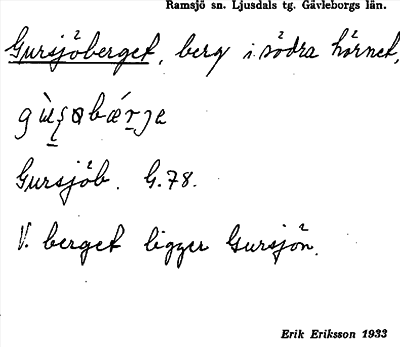 Ramsjö sn. Ljusdals tg. Gävleborgs län.
Gursjöberget, berg i södra hörnet,
Gursjöb. G.78.
V. berget ligger Gursjön.
Erik Eriksson 1933